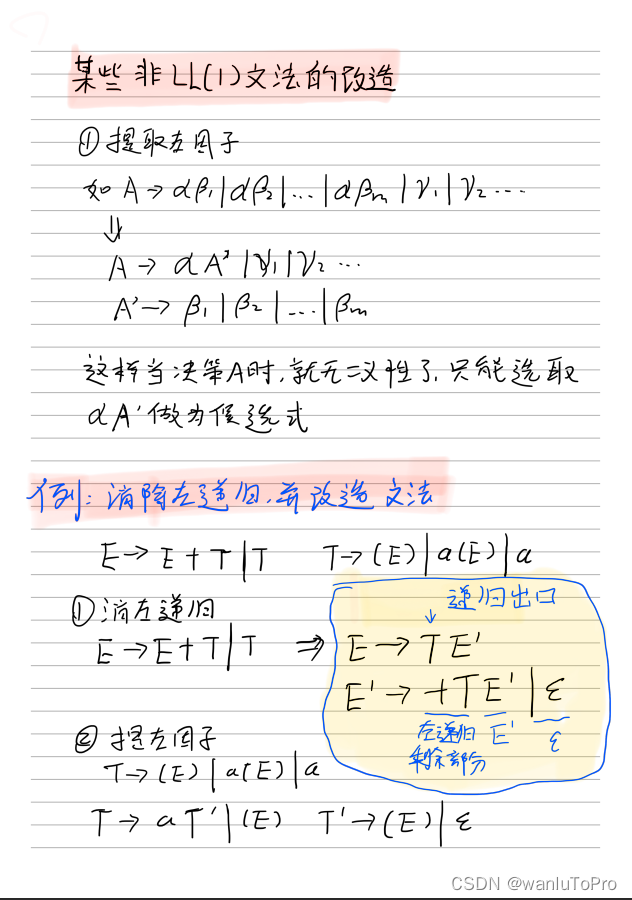 某些非LL(1)文法的改造
① 提取左因子
如 A → αβ₁|αβ₂|...|αβₘ|γ₁|γ₂ ...
⇓
A → αA'|γ₁|γ₂ ...
A' → β₁|β₂|...|βₘ
这样当决策A时,就无二义性了,只能选取
αA'做为候选式
例: 消除左递归,并改造文法
E → E+T|T T → (E)|a(E)|a
① 消左递归
E → E+T|T ⇒
递归出口
↓
E → TE'
E' → +TE'|ε
左递归 E' ε
剩余部分
② 提左因子
T → (E)|a(E)|a
T → aT'|(E) T' → (E)|ε
CSDN @wanluToPro